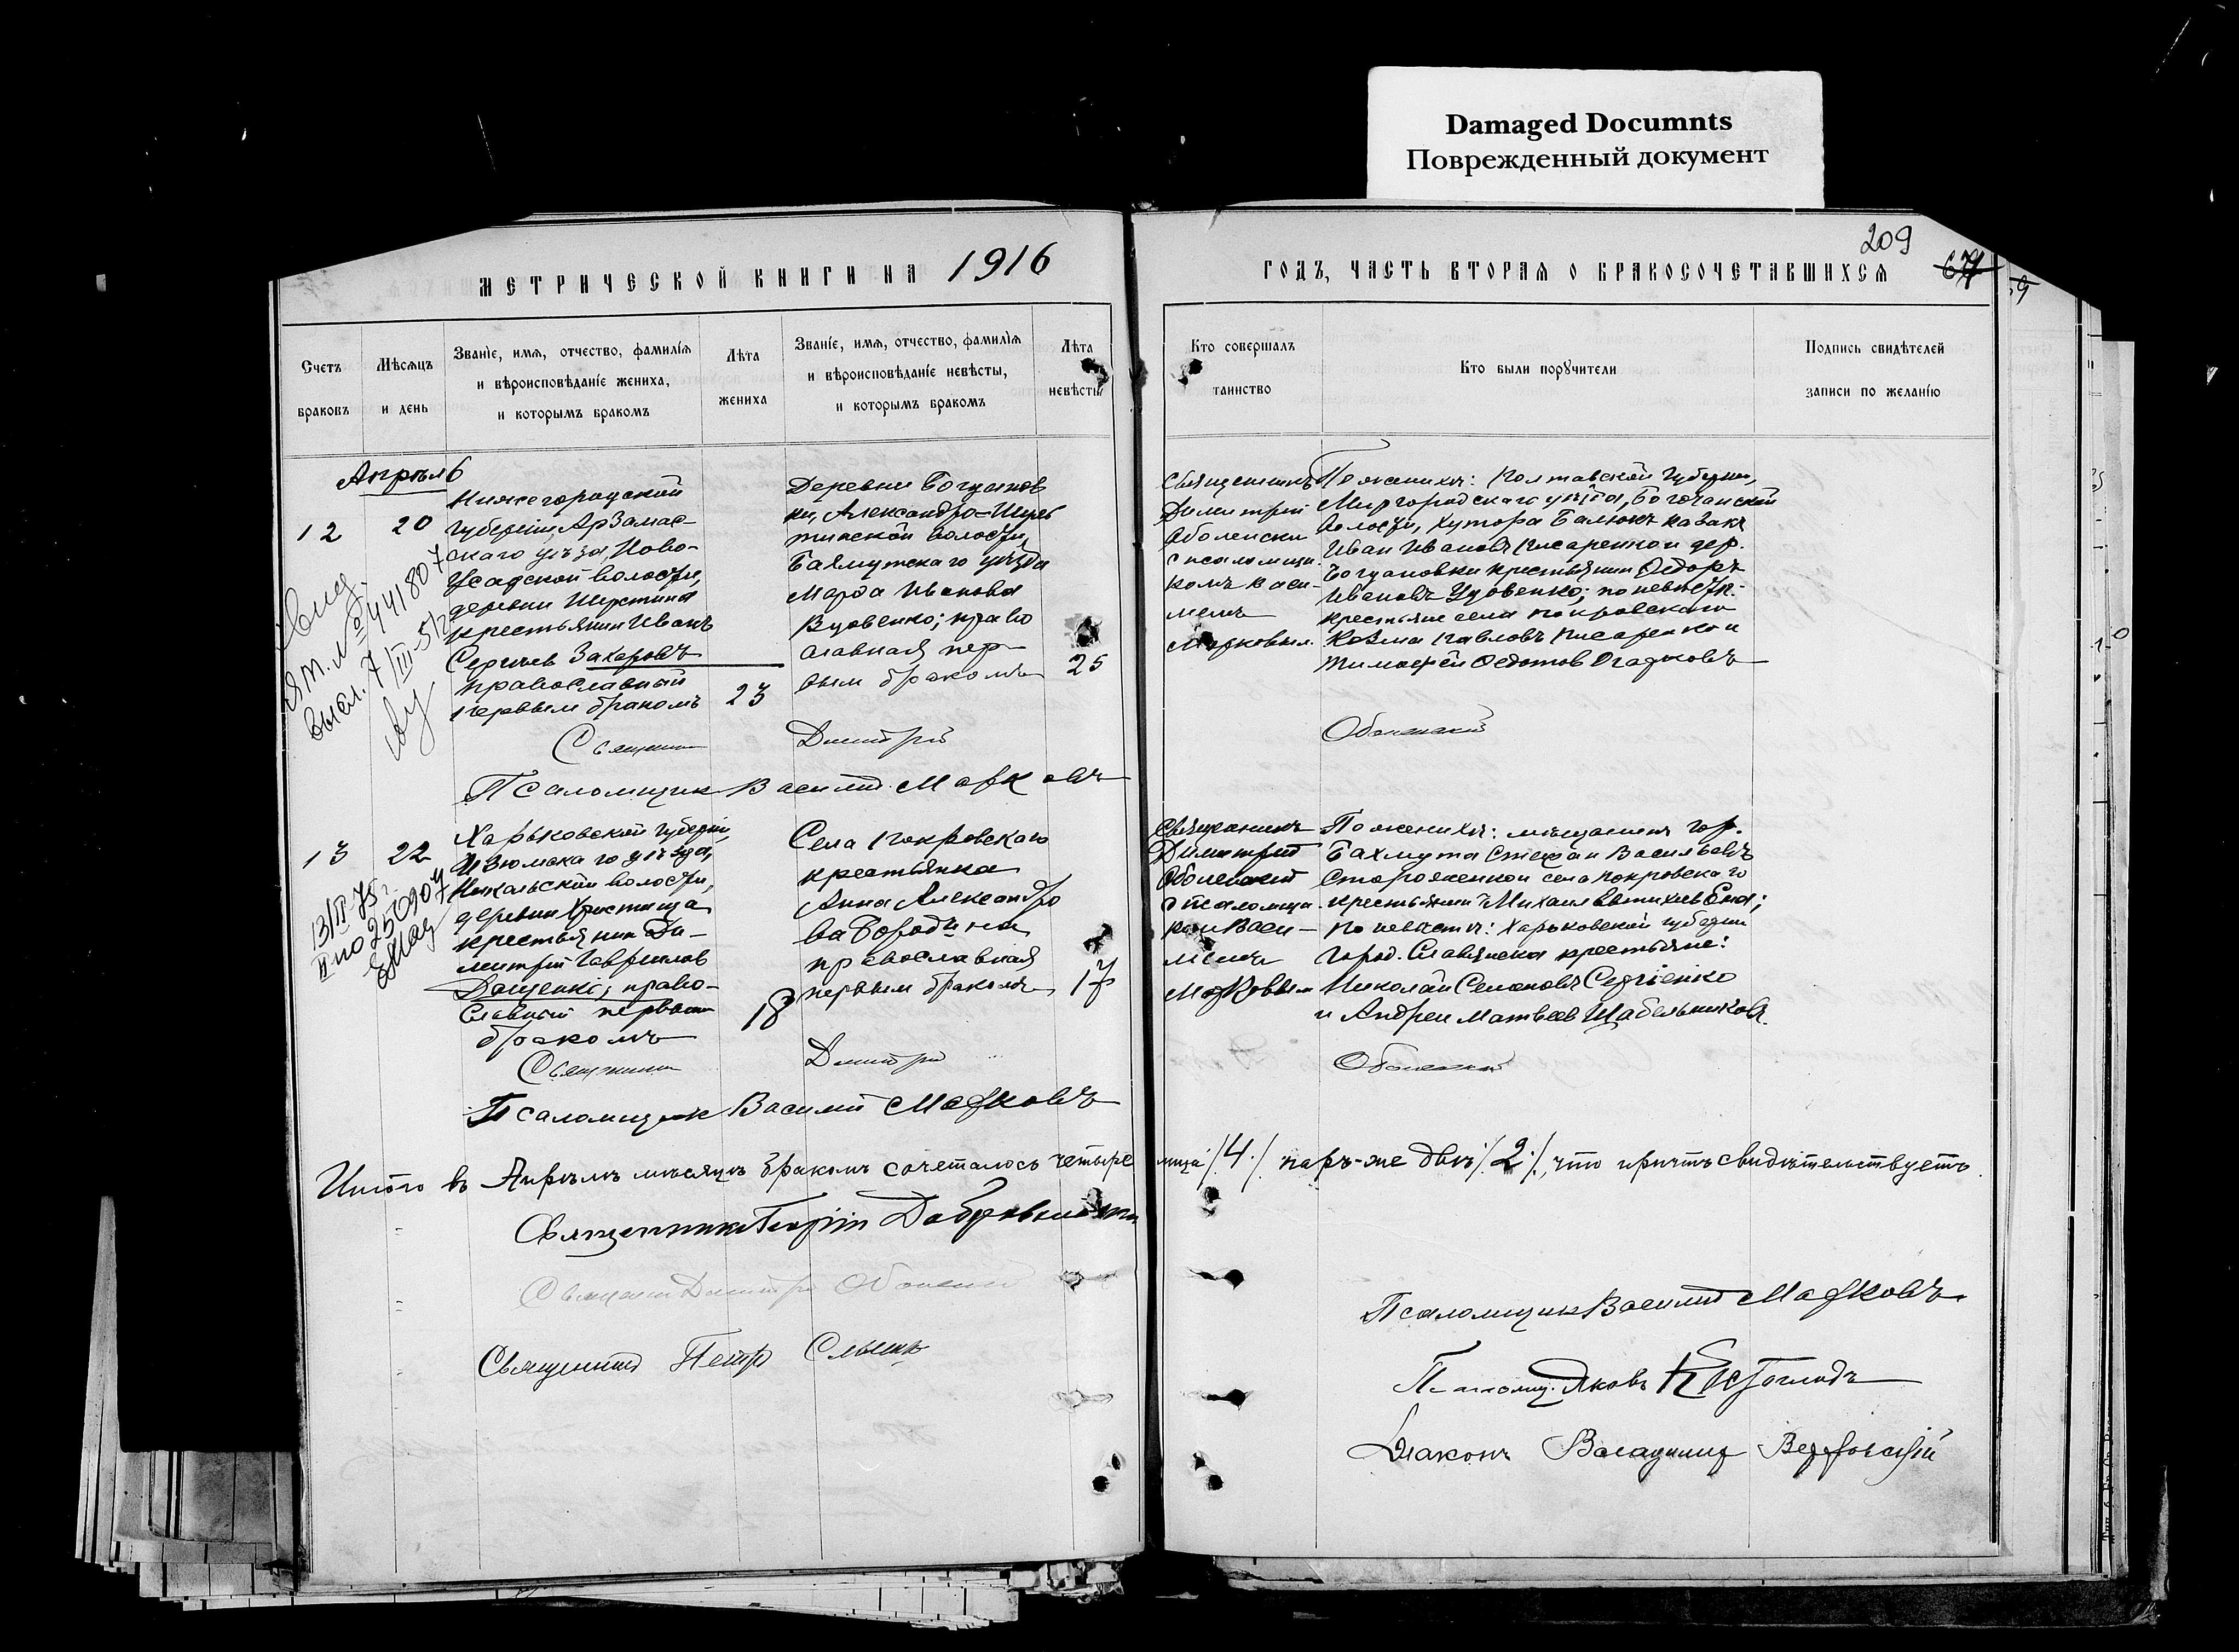 Damaged Documnts
Поврежденный документ
209
67
МЕТРИЧЕСКОЙ КНИГИ НА 1916
ГОДЪ, ЧАСТЬ ВТОРАЯ О БРАКОСОЧЕТАВШИХСЯ
Счетъ
браковъ
Мѣсяцъ
и день
Званіе, имя, отчество, фамилія
и вѣроисповѣданіе жениха,
и которымъ бракомъ
Лѣта
жениха
Званіе, имя, отчество, фамилія
и вѣроисповѣданіе невѣсты,
и которымъ бракомъ
Лѣта
невѣсты
Кто совершалъ
таинство
Кто были поручители
Подпись свидѣтелей
записи по желанію
Апрѣль
12
20
Нижегородской
губерніи, Арзамас-
скаго уѣзда, Ново-
Усадской волости,
деревни Шерстина
крестьянин Иванъ
Сергѣев Захаровъ
православный
первым бракомъ
23
Деревни Богданов
ки, Александро-Шуль
тинской волости,
Бахмутскаго уѣзда
Марфа Иванова
Вдовенко; право
славная пер-
вым бракомъ
25
Священникъ
Димитрій
Оболенски
с псаломщи
комъ Васи-
лием
Марковым.
По женихѣ: Полтавской губерніи,
Миргородскаго уѣзда, Богочанской
волости, хутора Балюкъ казакъ
Иван Ивановъ Писаренко и дер.
Богдановки крестьянин Ѳедоръ
Ивановъ Удовенко; по невѣстѣ:
крестьяне села Покровскаго
Козма Павловъ Писаренко и
Тимофей Ѳедотов
№ 441807
Священник Димитрій Оболенскій
Псаломщик Василій Марковъ
13
22
13/II 75г.
II по 250907
Харьковской губерніи,
Изюмскаго уѣзда,
волости,
деревни Христища
крестьянин Ди-
митрій Гаврилов
Даценко; право-
славный первым
бракомъ
18
Села Покровскаго
крестьянка
Анна Александро
ва Бородина
православная
первым бракомъ
17
Священникъ
Димитрій
Оболенскій
с псаломщи
ком Васи-
лием
Марковым
По женихѣ: мѣщанин гор.
Бахмута Стефан Васильевъ
Стороженко и села Покровскаго
крестьянин Михаил
по невѣстѣ: Харьковской губерніи
город. Славянска крестьяне:
Николай Семеновъ Сергіенко
и Андрей Матвѣев Щабельников.
Священник Димитрій Оболенскій
Псаломщик Василій Марковъ
Итого въ Апрѣлѣ мѣсяцѣ бракомъ сочеталось четыре лица /4/ паръ-же двѣ /2/, что причтъ свидѣтельствуетъ.
Священникъ Георгій
Священник Димитрій Оболенскій
Священник Петр
Псаломщик Василій Марковъ
Псаломщ. Яковъ
Діаконъ Владимир